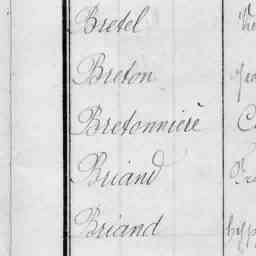 Bretel
Breton
Bretonnière
Briand
Briand